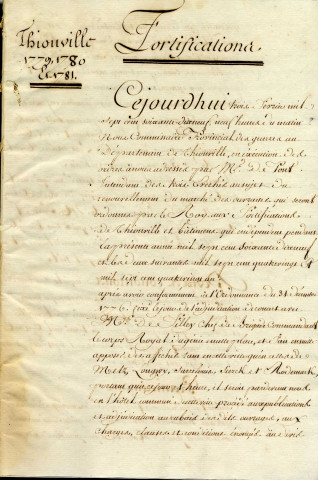 Thionville
1779, 1780
Et 1781.
Fortifications
Cejourdhui trois fevrier mil
Sept cent soixante dixneuf neuf heures du matin
Nous Commissaire Provincial des guerres au
Département de Thionville, en execution des
ordres à nous adressés par Mr. de Pont
Intendant des trois Evechés au sujet du
renouvellement du marché des ouvrages qui seront
ordonnés par le Roy, aux fortifications
de Thionville et bâtimens qui en dépendent pendant
la présente année mil sept cent Soixante dixneuf
et les deux suivantes mil sept cent quatrevingt et
mil sept cent quatrevingt un
après avoir conformément à l'Ordonnance du 31 décembre
1776. fixé le jour de l'adjudication de concert avec
Mr. de Chef de Brigade Commandant
le corps Royal du génie en cette place, et fait ensuite
apposer des affiches tant en cette ville qu'en celles de
Metz, Longwy, Sarrelouis, Sierck et Rodemack,
portant que cejourd'hui heure, et serait par devant nous
en l'hôtel commun de cette ville procédé aux publications
et adjudication au rabais desdits ouvrages, aux
charges, clauses et conditions énoncées au devis